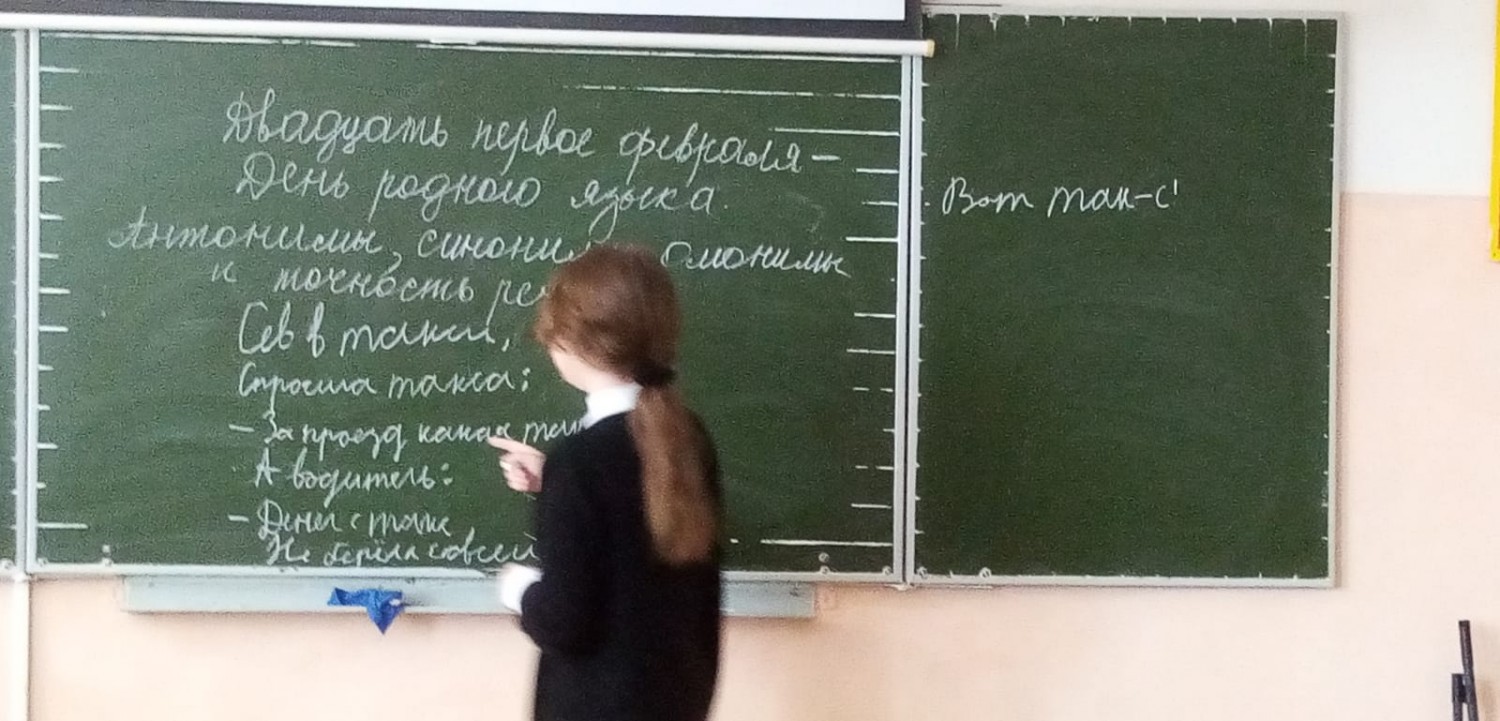 Двадцать первое февраля –
День родного языка.
Антонимы, омонимы
и точность
Сев в такси,
Спросила такса:
– За проезд какая
А водитель:
– Денег с такс
Не берём совсем
Вот так-с!